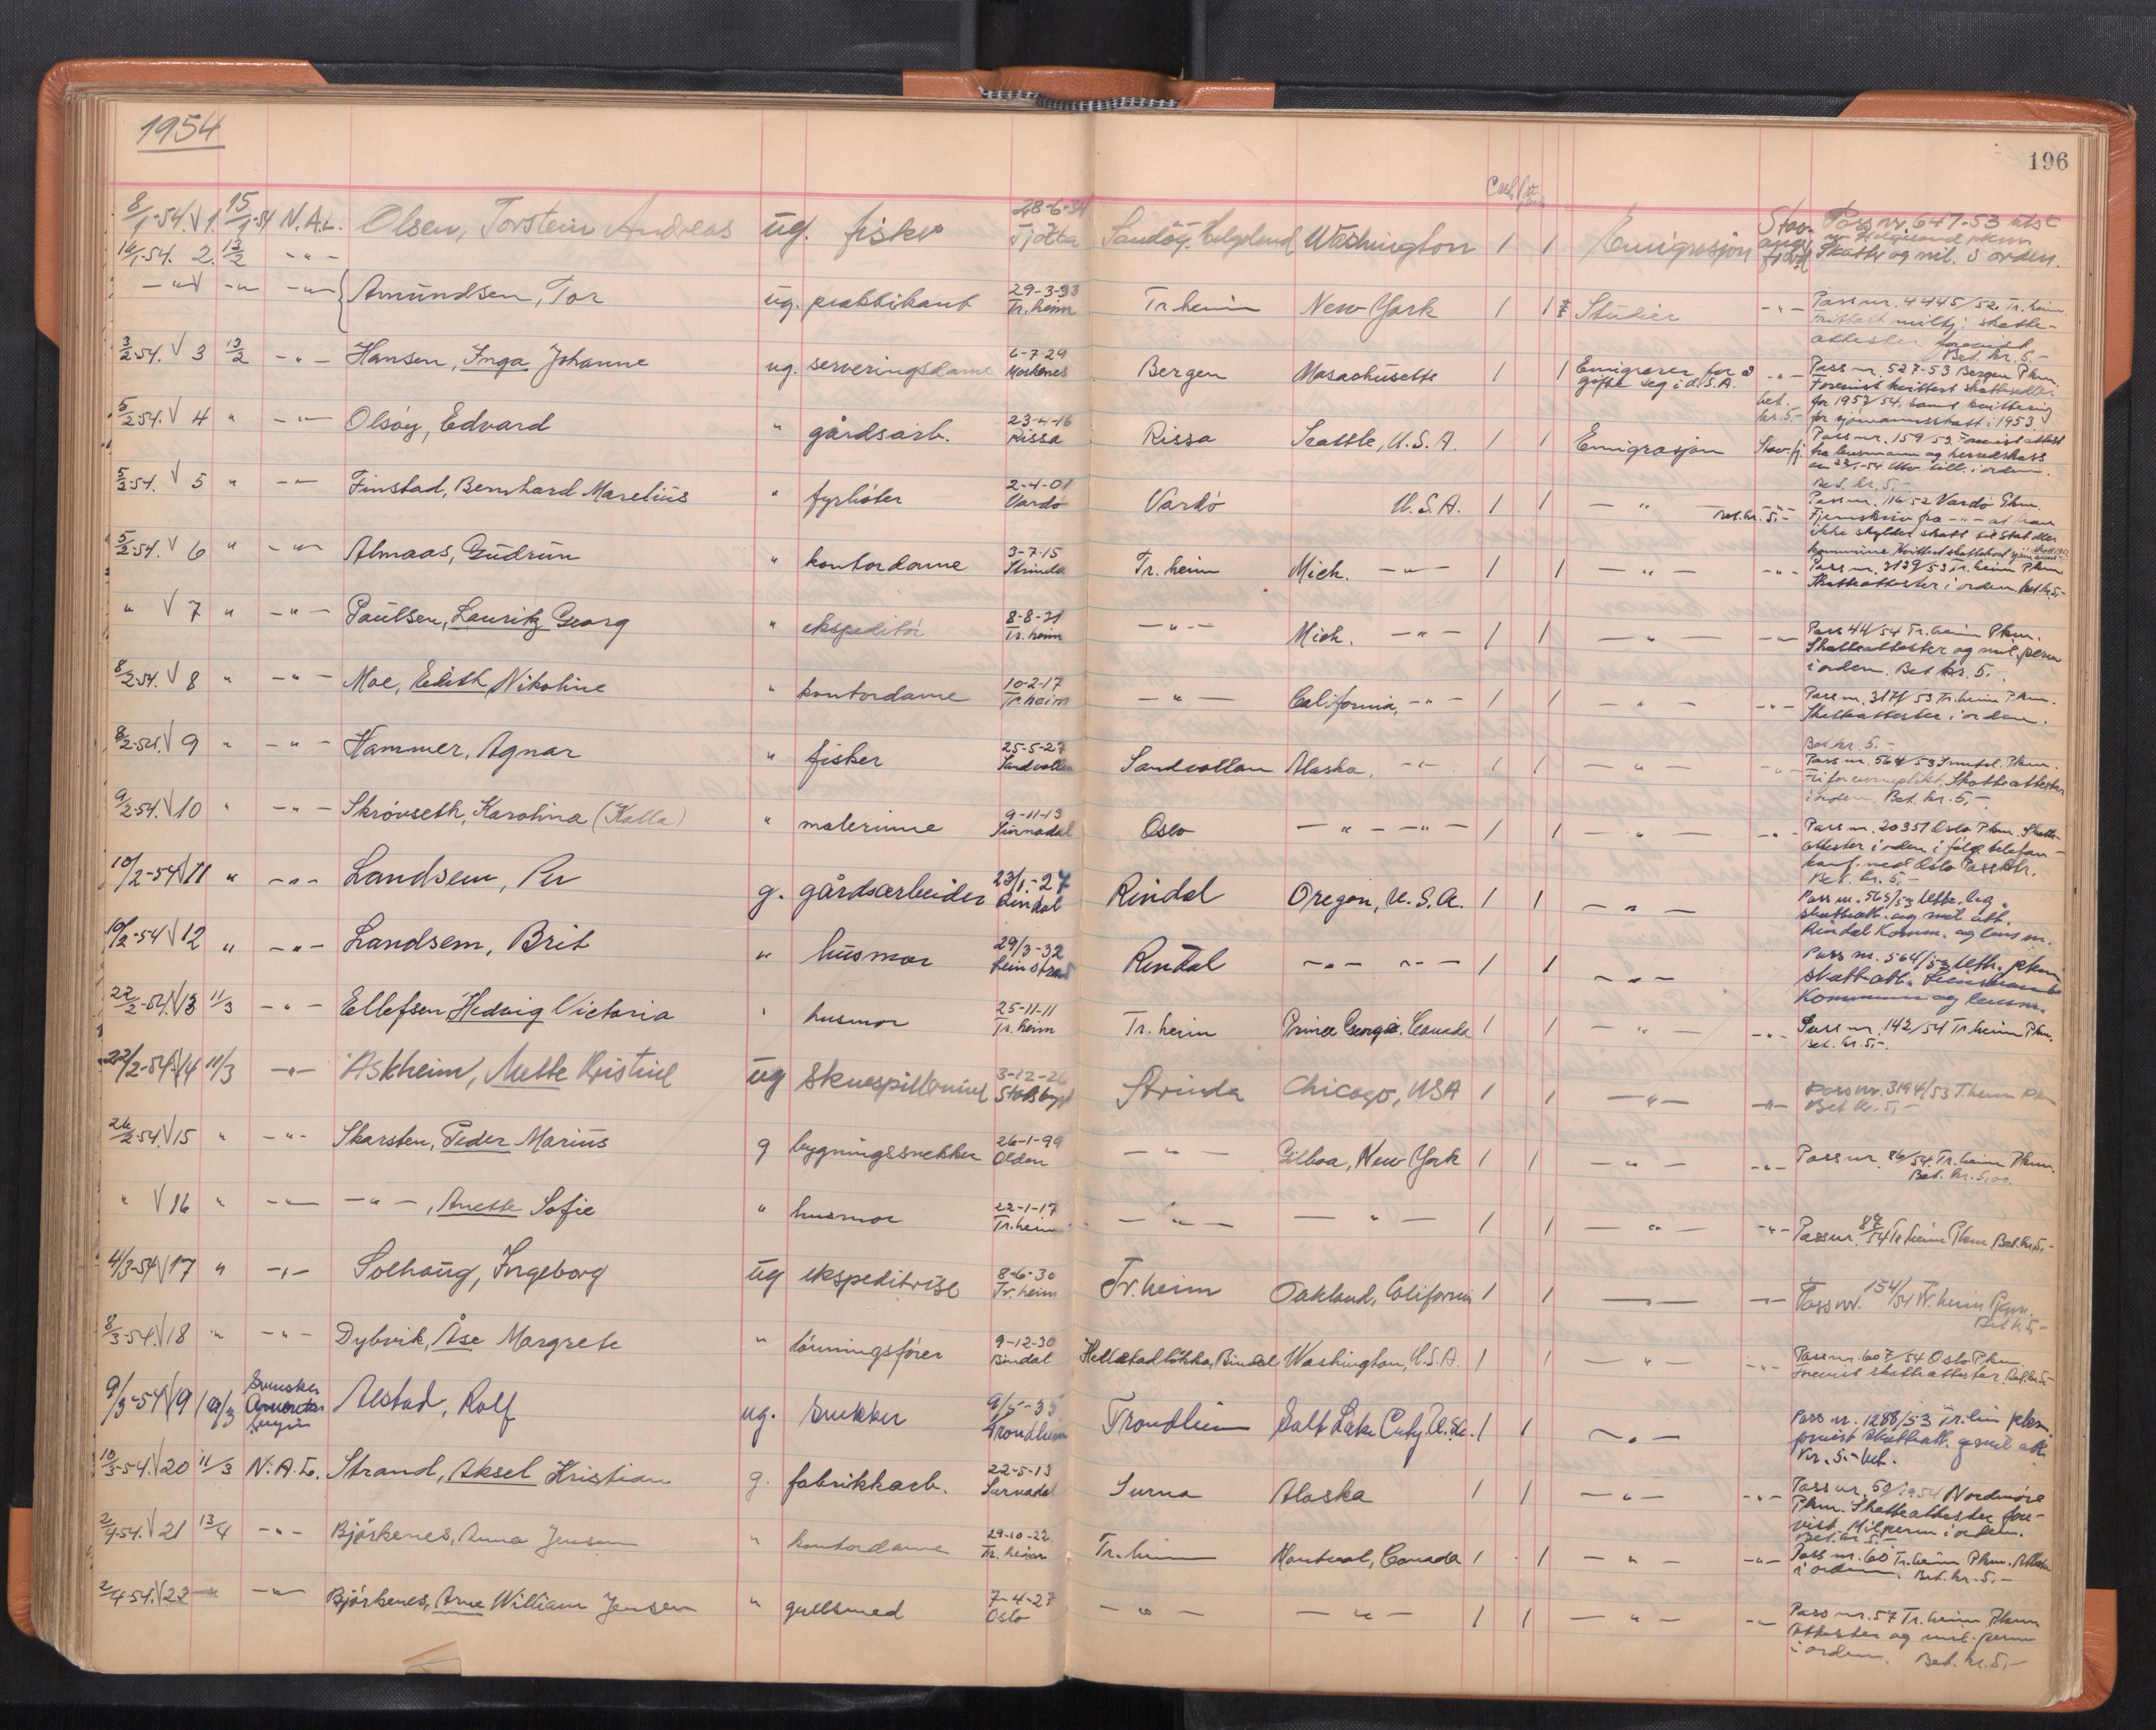 1954
196
8/1-54. V 1. 15/1-54 N.A.L. Olsen, Torstein Andreas ug. fisker 28-6-34 Tjøtta Sandøy, Helgeland Washington 1 1 Emigrasjon Pass nr. 647-53 utst
Skatt og mil. i orden.
14/1-54. 2. 13/2 - " -
- " - V - " - - " - Amundsen, Tor ug. praktikant 29-3-33 Tr.heim Tr.heim New York 1 1 Studier - " - Pass nr. 4445/52. Tr.heim
attester forevist
Bet. kr. 5.-
3/2-54. V 3 13/2 - " - Hansen, Inga Johanne ug. serveringsdame 6-7-29 Moskenes Bergen Masachusetts 1 1 Emigrerer for å gifte seg i U.S.A. - " - Pass nr. 527-53 Bergen Pkm.
Forevist kvittert skatteseddel
bet. kr. 5- for 1953/54, samt kvittering
for sjømannsskatt i 1953
5/2-54. V 4 " - " - Olsøy, Edvard " gårdsarb. 23-4-16 Rissa Rissa Seattle, U.S.A 1 1 Emigrasjon Stav.fj. Pass nr. 159/53. Forevist attest
fra lensmann og herredskass
Bet. kr. 5.-
5/2-54. V 5 " - " - Finstad, Bernhard Marelius " fyrbøter 2-4-01 Vardø Vardø U.S.A. 1 1 - " - Bet. kr. 5.- Pass nr. 116/52 Vardø Pkm.
ikke skylder skatt til stat eller
5/2-54. V 6 " - " - Almaas, Gudrun " kontordame 3-7-15 Strinda Tr.heim Mich. - " - 1 1 - " - - " - Pass nr. 3139/53 Tr.heim Pkm
Skatteattester i orden. bet. kr. 5,-
" V 7 " - " - Paulsen, Lauritz Georg " ekspeditør 8-8-31 Tr.heim - " - Mich. - " - 1 1 - " - - " - Pass 44/54 Tr.heim Pkm.
Skatteattester og mil. perm
i orden. Bet kr. 5,-
8/2-54. V 8 " - " - Moe, Edith Nikoline " kontordame 10-2-17 Tr.heim - " - California, - " - 1 1 - " - - " - Pass nr. 3171/53 Tr.heim Pkm.
Skatteattester i orden.
Bet kr. 5.-
8/2-54. V 9 " - " - Hammer, Agnar " fisker 25-5-27 Sandvollan Sandvollan Alaska, - " - 1 1 - " - - " - Pass nr. 564/53 Inntrl. Pkm.
Fri for verneplikt. Skatteattester
i orden. Bet. kr. 5,-
9/2-54. V 10 " - " - Skrøvseth, Karolina (Kalla) " malerinne 9-11-13 Surnadal Oslo - " - - " - 1 1 - " - - " - Pass nr. 20351 Oslo Pkm. Skatte-
attester i orden i følge telefon-
konf. med Oslo Passktr.
Bet. kr. 5,-
10/2-54 V 11 " - " - Landsem, Per g. gårdsarbeider 23/1-27 Rindal Rindal Oregon, U.S.A. 1 1 - " - Pass nr. 565/53
skatteatt. og mil. att.
Rindal Komm. og lensm.
10/2-54 V 12 " - " - Landsem, Brit " husmor 29/3-32 Leinstrand Rindal - " - - " - 1 1 - " - Pass nr. 564/53 Uttr. pkm
skatteatt. Leinstrand
Kommune og lensm.
22/2-54. V 13 11/3 - " - Ellefsen Hedvig Victoria " husmor 25-11-11 Tr.heim Tr.heim Prince George, Canada 1 1 - " - - " - Pass nr. 142/54 Tr.heim Pkm.
Bet. kr. 5.-
22/2-54. V 14 11/3 - " - Askheim, Mette Kristine ug skuespillerinne 3-12-26 Stadsbygd Strinda Chicago, USA 1 1 - " - - " - Pass nr. 3194/53 T.heim Pkm
Bet kr. 5,-
26/2-54. V 15 " - " - Skarsten, Peder Marius g bygningssnekker 26-1-99 Olden - " - Gilboa, New York 1 1 - " - - " - Pass nr. 86/54. Tr.heim Pkm.
Bet. kr. 5,00.
" V 16 " - " - - " -, Anette Sofie " husmor 22-1-17 Tr.heim - " - - " - 1 1 - " - - " - Pass nr. 87/54 Tr.heim Pkm Bet. kr. 5,-
4/3-54 V 17 " - " - Solhaug, Ingeborg ug ekspeditrise 8-6-30 Tr.heim Tr.heim Oakland, California 1 1 - " - - " - Pass nr. 154/54 Tr.heim Pkm.
Bet kr 5,-
8/3-54. V 18 " - " - Dybvik, Åse Margrete " lønningsfører 9-12-30 Bindal Bindal Washington, U.S.A. 1 1 - " - - " - Pass nr. 607/54 Oslo Pkm.
Forevist skatteattester. Bet. kr. 5-
9/3-54 V 19 Svenske Amerika linjen Alstad, Rolf ug. snekker 9/5-35 Trondheim Trondheim Salt Lake City. U.S.A. 1 1 - " - Pass nr. 1288/53 Tr.heim pkm.
forevist skatteatt. og mil att.
Kr. 5.- bet.
10/3-54. V 20 11/3 N.A.L. Strand, Aksel Kristian g. fabrikkarb. 22-5-13 Surnadal Surna Alaska 1 1 - " - - " - Pass nr. 50/1954 Nordmøre
Pkm. Skatteattester fore-
vist. Mil perm i orden.
Bet. kr 5.-
2/4-54. V 21 13/4 - " - Bjørkenes, Anna Jensen " kontordame 29-10-22. Tr.heim Tr.heim Montreal, Canada 1 1 - " - - " - Pass nr. 60 Tr.heim Pkm. Attester
i orden. Bet. kr. 5.-
2/4-54. V 22 - " - - " - Bjørkenes, Arne William Jensen " gullsmed 7-4-27 Oslo - " - - " - 1 1 - " - - " - Pass nr. 57 Tr.heim Pkm
Attester og mil. perm
i orden. Bet. kr. 5,-